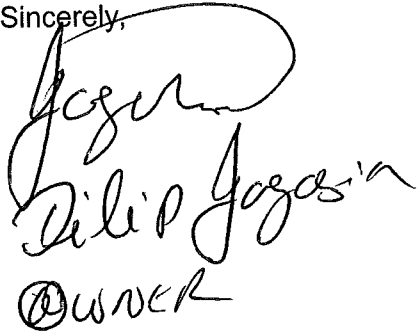 Sincerely,
Dilip Jagasia
OWNER